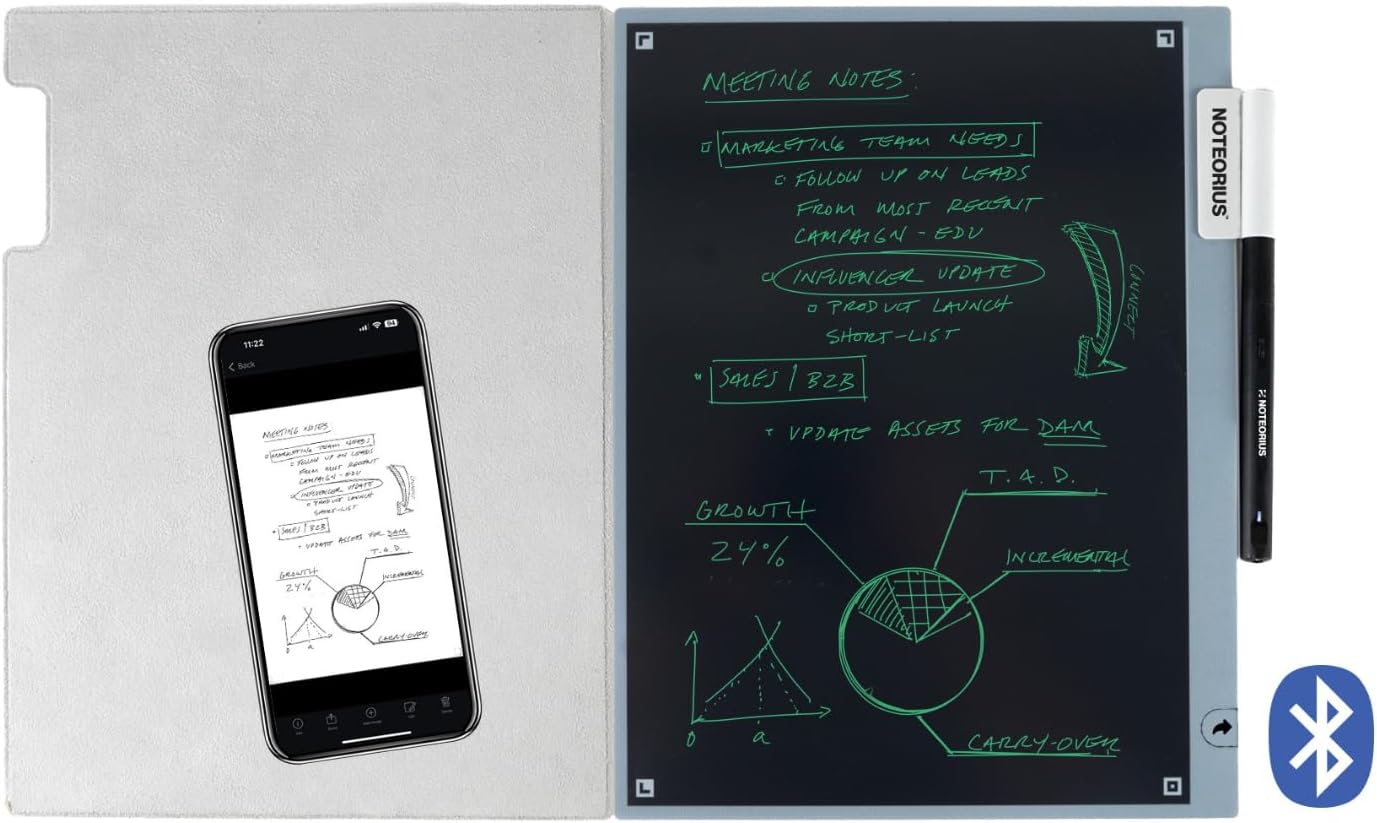 MEETING NOTES:
MARKETING TEAM NEEDS
FOLLOW UP ON LEADS
FROM MOST RECENT
CAMPAIGN - EDU
INFLUENCER UPDATE
PRODUCT LAUNCH
SHORT-LIST
CONNECT
SALES | B2B
UPDATE ASSETS FOR DAM
T.A.D.
GROWTH
24%
INCREMENTAL
CARRY-OVER
0 a
NOTEORIUS
NOTEORIUS
11:22
94
Back
MEETING NOTES
MARKETING TEAM NEEDS
FOLLOW UP ON LEADS
FROM MOST RECENT
CAMPAIGN - EDU
INFLUENCER UPDATE
PRODUCT LAUNCH
SHORT-LIST
CONNECT
SALES | B2B
UPDATE ASSETS FOR DAM
T.A.D.
GROWTH
24%
INCREMENTAL
CARRY-OVER
0 a